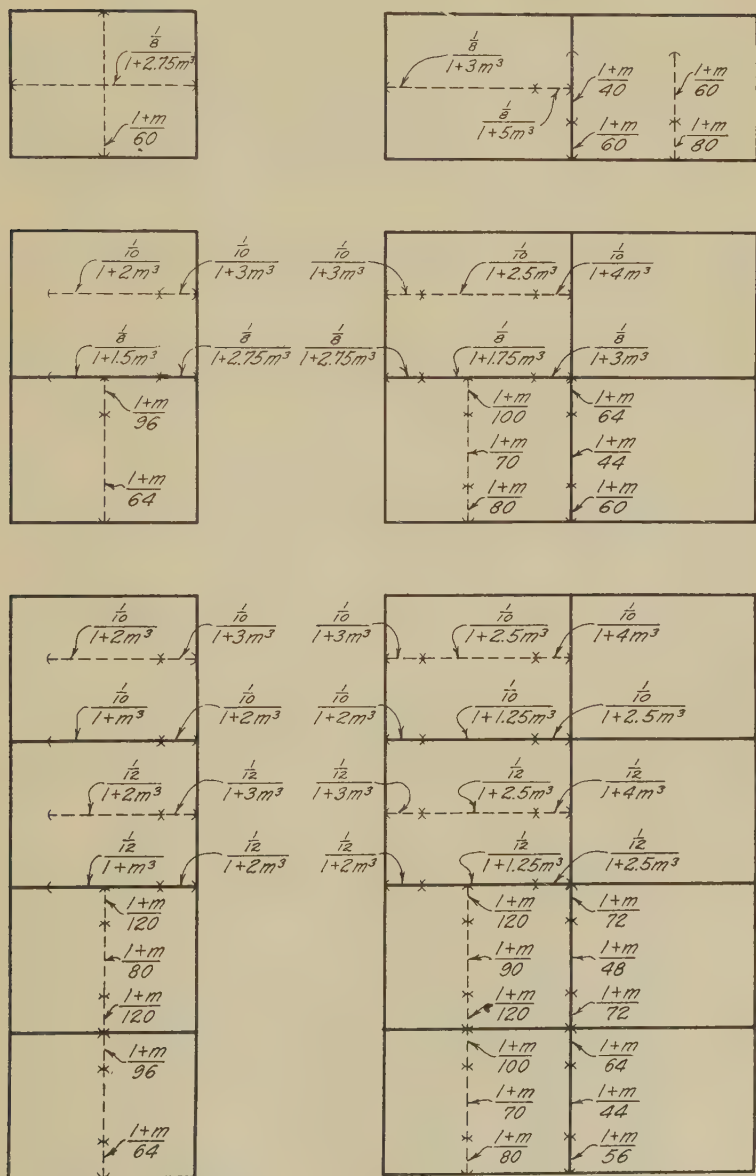 1/8 / 1+2.75m³
1+m / 60
1/8 / 1+3m³
1/8 / 1+5m³
1+m / 40
1+m / 60
1+m / 60
1+m / 80
1/10 / 1+2m³
1/10 / 1+3m³
1/10 / 1+3m³
1/10 / 1+2.5m³
1/10 / 1+4m³
1/8 / 1+1.5m³
1/8 / 1+2.75m³
1/8 / 1+2.75m³
1/8 / 1+1.75m³
1/8 / 1+3m³
1+m / 96
1+m / 100
1+m / 64
1+m / 70
1+m / 44
1+m / 64
1+m / 80
1+m / 60
1/10 / 1+2m³
1/10 / 1+3m³
1/10 / 1+3m³
1/10 / 1+2.5m³
1/10 / 1+4m³
1/10 / 1+m³
1/10 / 1+2m³
1/10 / 1+2m³
1/10 / 1+1.25m³
1/10 / 1+2.5m³
1/12 / 1+2m³
1/12 / 1+3m³
1/12 / 1+3m³
1/12 / 1+2.5m³
1/12 / 1+4m³
1/12 / 1+m³
1/12 / 1+2m³
1/12 / 1+2m³
1/12 / 1+1.25m³
1/12 / 1+2.5m³
1+m / 120
1+m / 120
1+m / 72
1+m / 80
1+m / 90
1+m / 48
1+m / 120
1+m / 120
1+m / 72
1+m / 96
1+m / 100
1+m / 64
1+m / 70
1+m / 44
1+m / 64
1+m / 80
1+m / 56